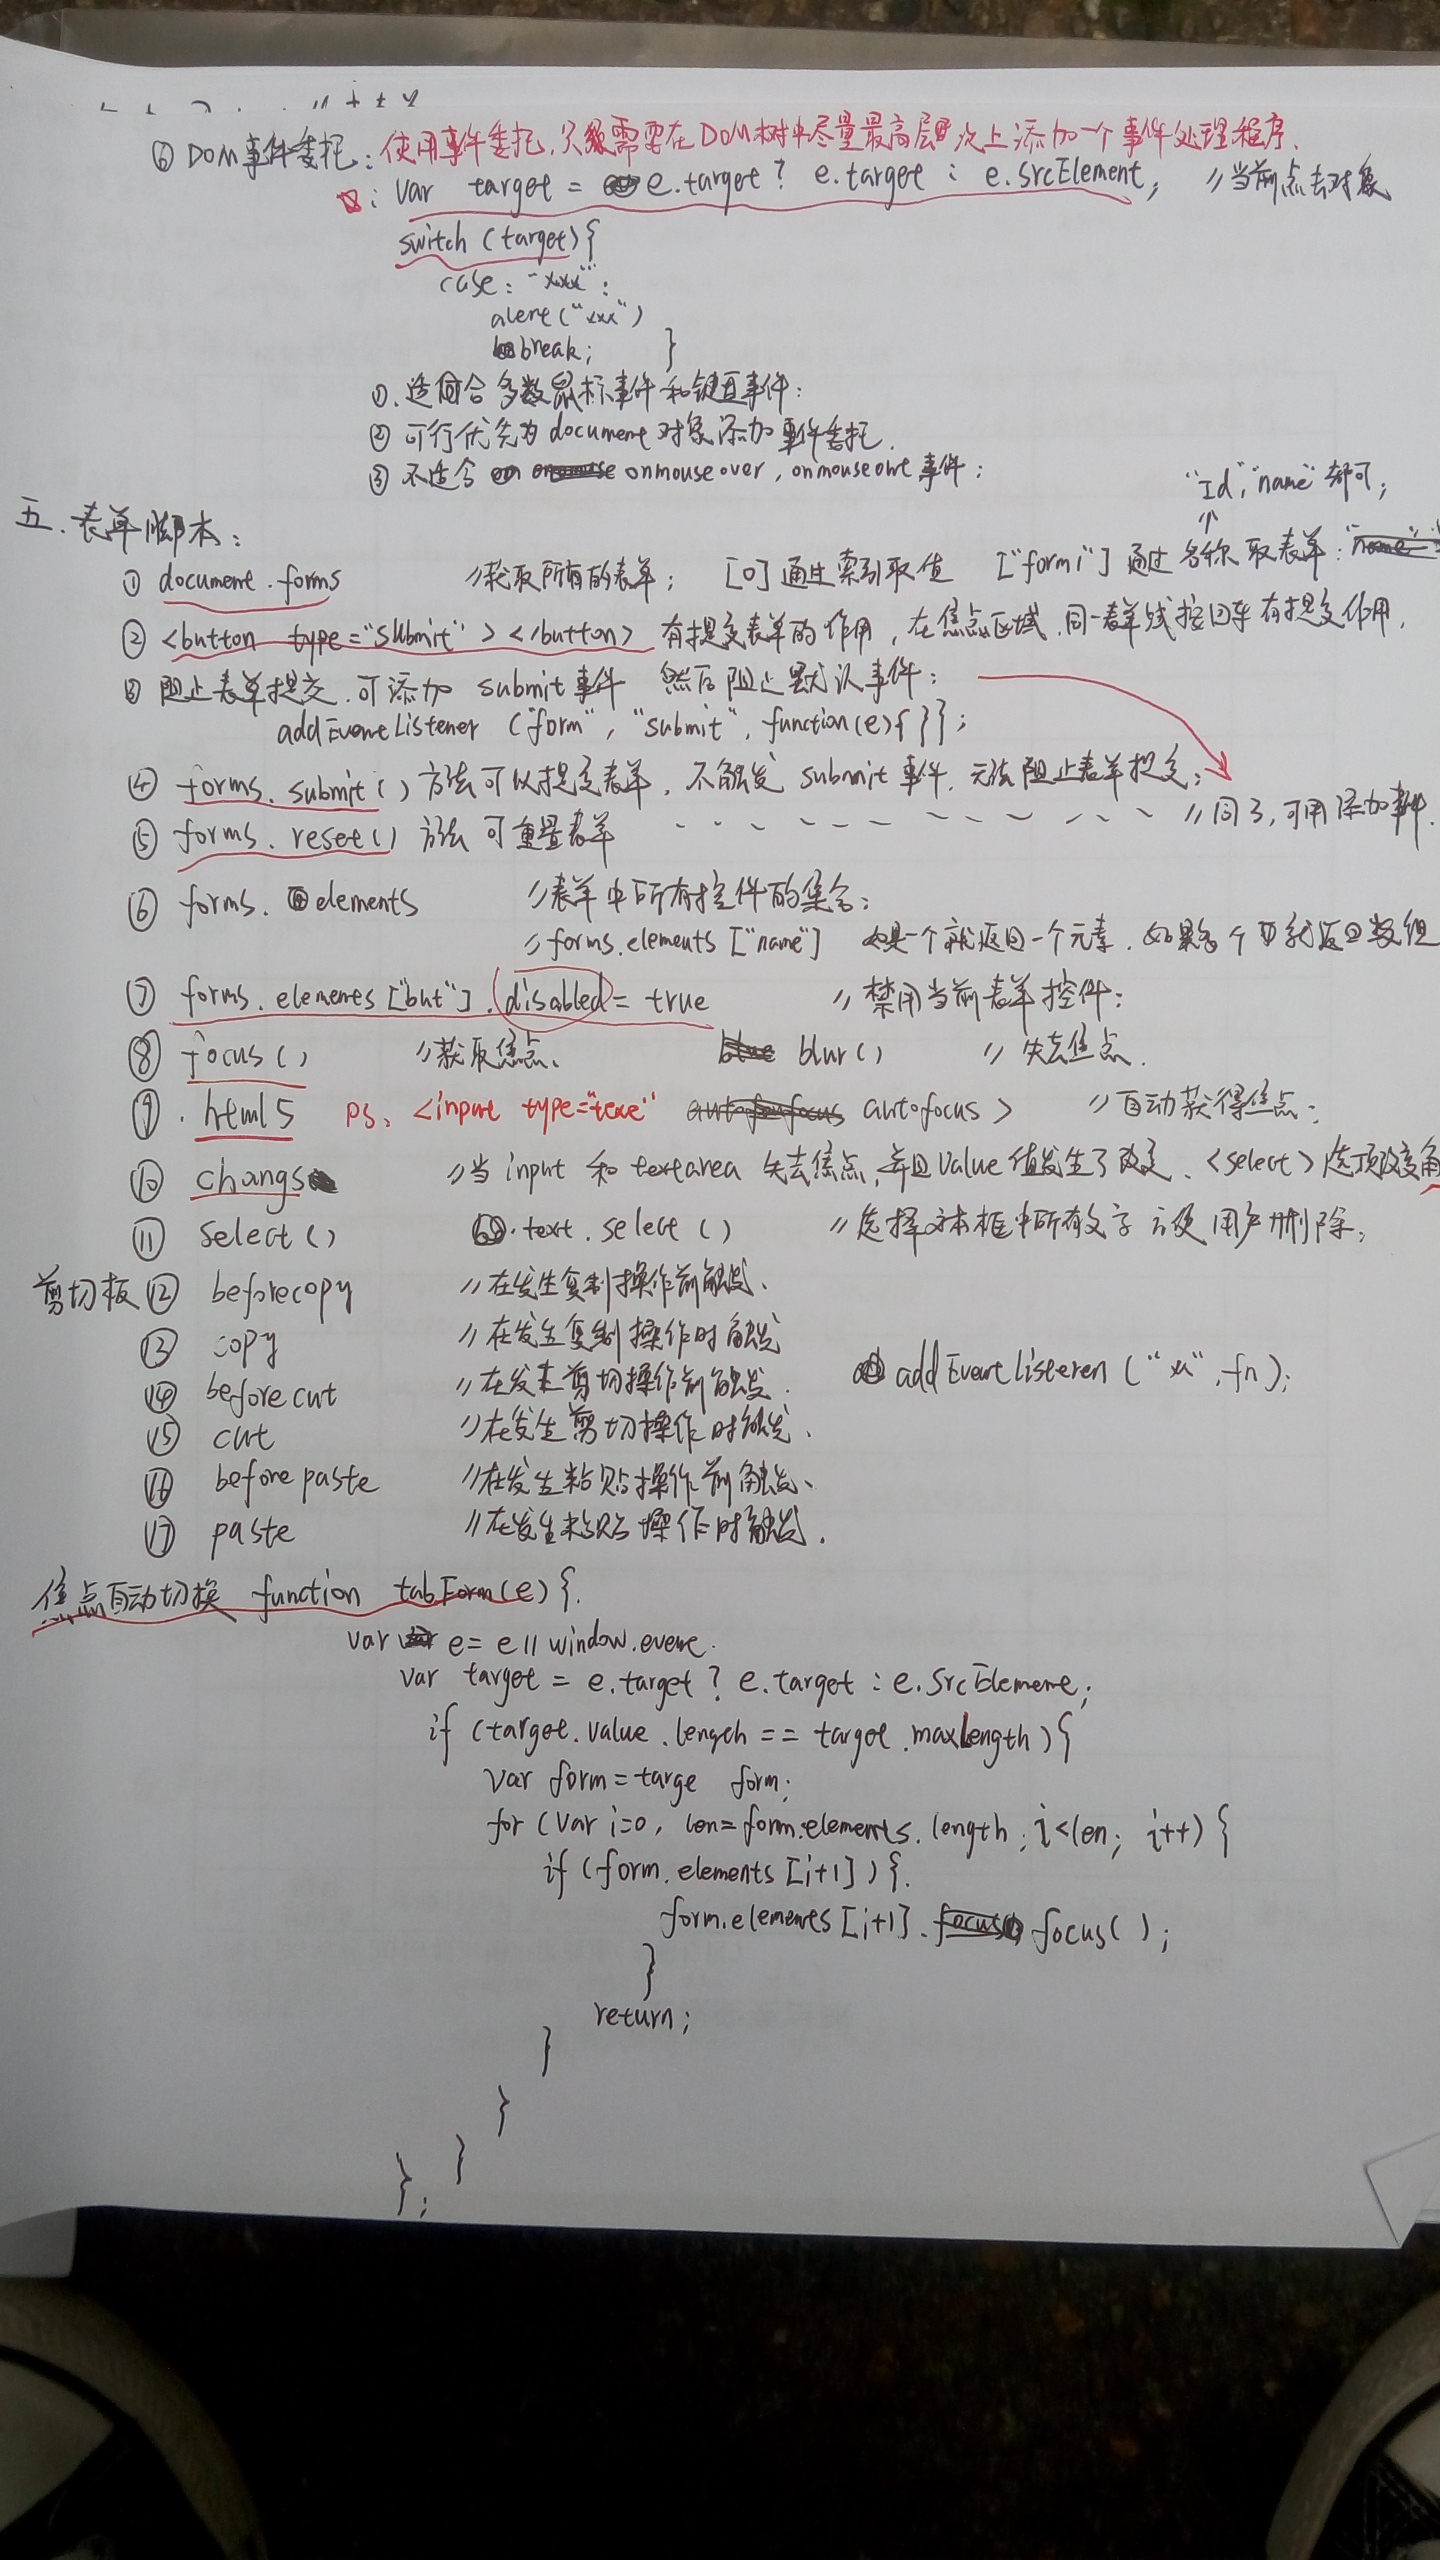 ⑥ DOM事件委托: 使用事件委托,只需要在DOM树中尽量最高层次上添加一个事件处理程序.
: var target = e.target? e.target : e.srcElement; //当前点击对象
switch (target){
case: "xxx":
alert("xxx")
break; }
①.适合多数鼠标事件和键盘事件:
② 可行优先为document对象添加事件委托.
③ 不适合 onmouseover, onmouseout事件;
"Id","name"都可;
五.表单脚本:
① document.forms //获取所有的表单; [0]通过索引取值 ["form1"]通过名称取表单:
② <button type="submit"></button> 有提交表单的作用,在焦点区域,同一表单域按回车有提交作用,
③ 阻止表单提交.可添加 submit事件 然后阻止默认事件:
addEventListener ("form","submit",function(e){}};
④ forms.submit() 方法可以提交表单,不触发 submit事件,无法阻止表单提交;
⑤ forms.reset() 方法可重置表单 //同3,可用添加事件.
⑥ forms.elements //表单中所有控件的集合;
//forms.elements["name"] 如是一个就返回一个元素.如果多个就返回数组
⑦ forms.elements["but"].disabled = true //禁用当前表单控件:
⑧ focus() //获取焦点、 blur() //失去焦点.
⑨.html5 ps、<input type="text" autofocus> //自动获得焦点;
⑩ changs //当input和textarea失去焦点,并且value值发生了改变、<select>选项改变
⑪ select() .text.select() //选择文本框中所有文字方便用户删除;
剪切板⑫ beforecopy //在发生复制操作前触发、
⑬ copy //在发生复制操作时触发
⑭ beforecut //在发生剪切操作前触发. addEventListeren("xx",fn);
⑮ cut //在发生剪切操作时触发、
⑯ beforepaste //在发生粘贴操作前触发、
⑰ paste //在发生粘贴操作时触发.
焦点自动切换 function tabForm(e){
var e = e || window.event.
var target = e.target? e.target : e.srcElement;
if (target.value.length == target.maxLength){
var form = targe form;
for (var i=0, len=form.elements.length; i<len; i++){
if (form.elements[i+1]){
form.elements[i+1].focus();
}
return;
}
}
}
};